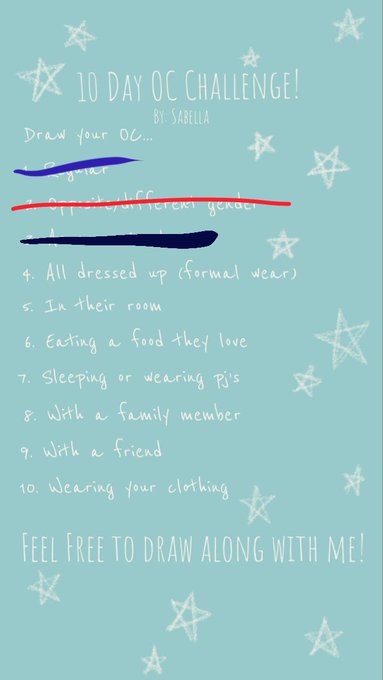 10 Day OC Challenge!
By: Sabella
Draw your OC...
1. Regular
2. Opposite/different gender
3.
4. All dressed up (formal wear)
5. In their room
6. Eating a food they love
7. Sleeping or wearing pj's
8. With a family member
9. With a friend
10. Wearing your clothing
Feel Free to draw along with me!